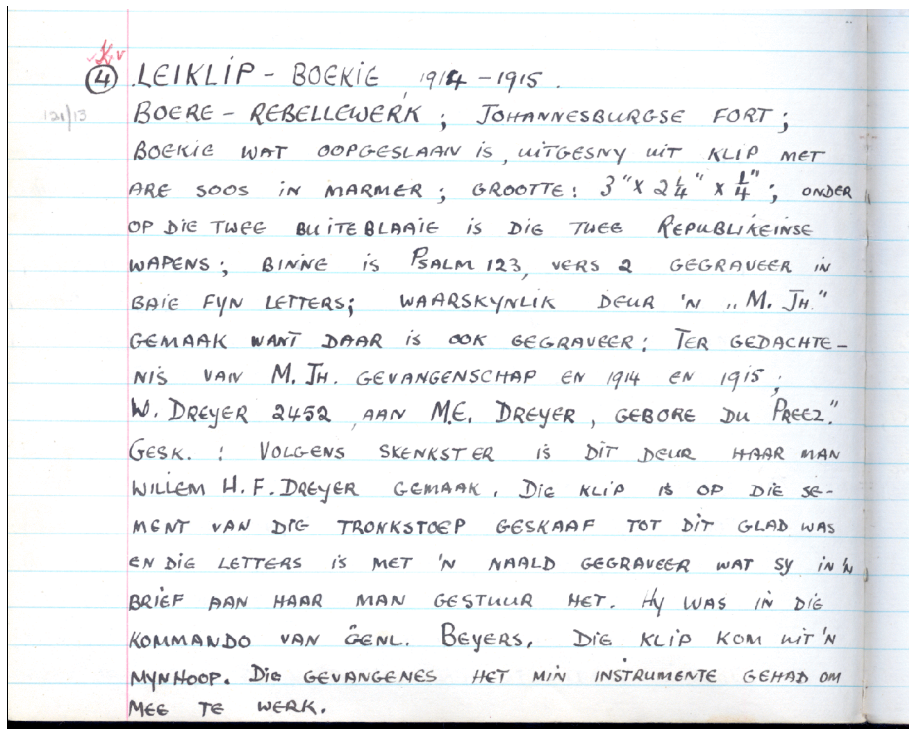 ④ LEIKLIP - BOEKIE, 1914 - 1915.
121/13 BOERE - REBELLEWERK ; JOHANNESBURGSE FORT ;
BOEKIE WAT OOPGESLAAN IS, UITGESNY UIT KLIP MET
ARE SOOS IN MARMER ; GROOTTE: 3" X 2 1/4" X 1/4" ; ONDER
OP DIE TWEE BUITEBLAAIE IS DIE TWEE REPUBLIKEINSE
WAPENS ; BINNE IS PSALM 123, VERS 2 GEGRAVEER IN
BAIE FYN LETTERS; WAARSKYNLIK DEUR 'N „M. JH."
GEMAAK WANT DAAR IS OOK GEGRAVEER: TER GEDACHTE-
NIS VAN M. JH. GEVANGENSCHAP EN 1914 EN 1915 ;
W. DREYER 2452, AAN M.E. DREYER, GEBORE DU PREEZ."
GESK. : VOLGENS SKENKSTER IS DIT DEUR HAAR MAN
WILLEM H. F. DREYER GEMAAK. DIE KLIP IS OP DIE SE-
MENT VAN DIE TRONKSTOEP GESKAAF TOT DIT GLAD WAS
EN DIE LETTERS IS MET 'N NAALD GEGRAVEER WAT SY IN 'N
BRIEF AAN HAAR MAN GESTUUR HET. HY WAS IN DIE
KOMMANDO VAN GENL. BEYERS. DIE KLIP KOM UIT 'N
MYNHOOP. DIE GEVANGENES HET MIN INSTRUMENTE GEHAD OM
MEE TE WERK.